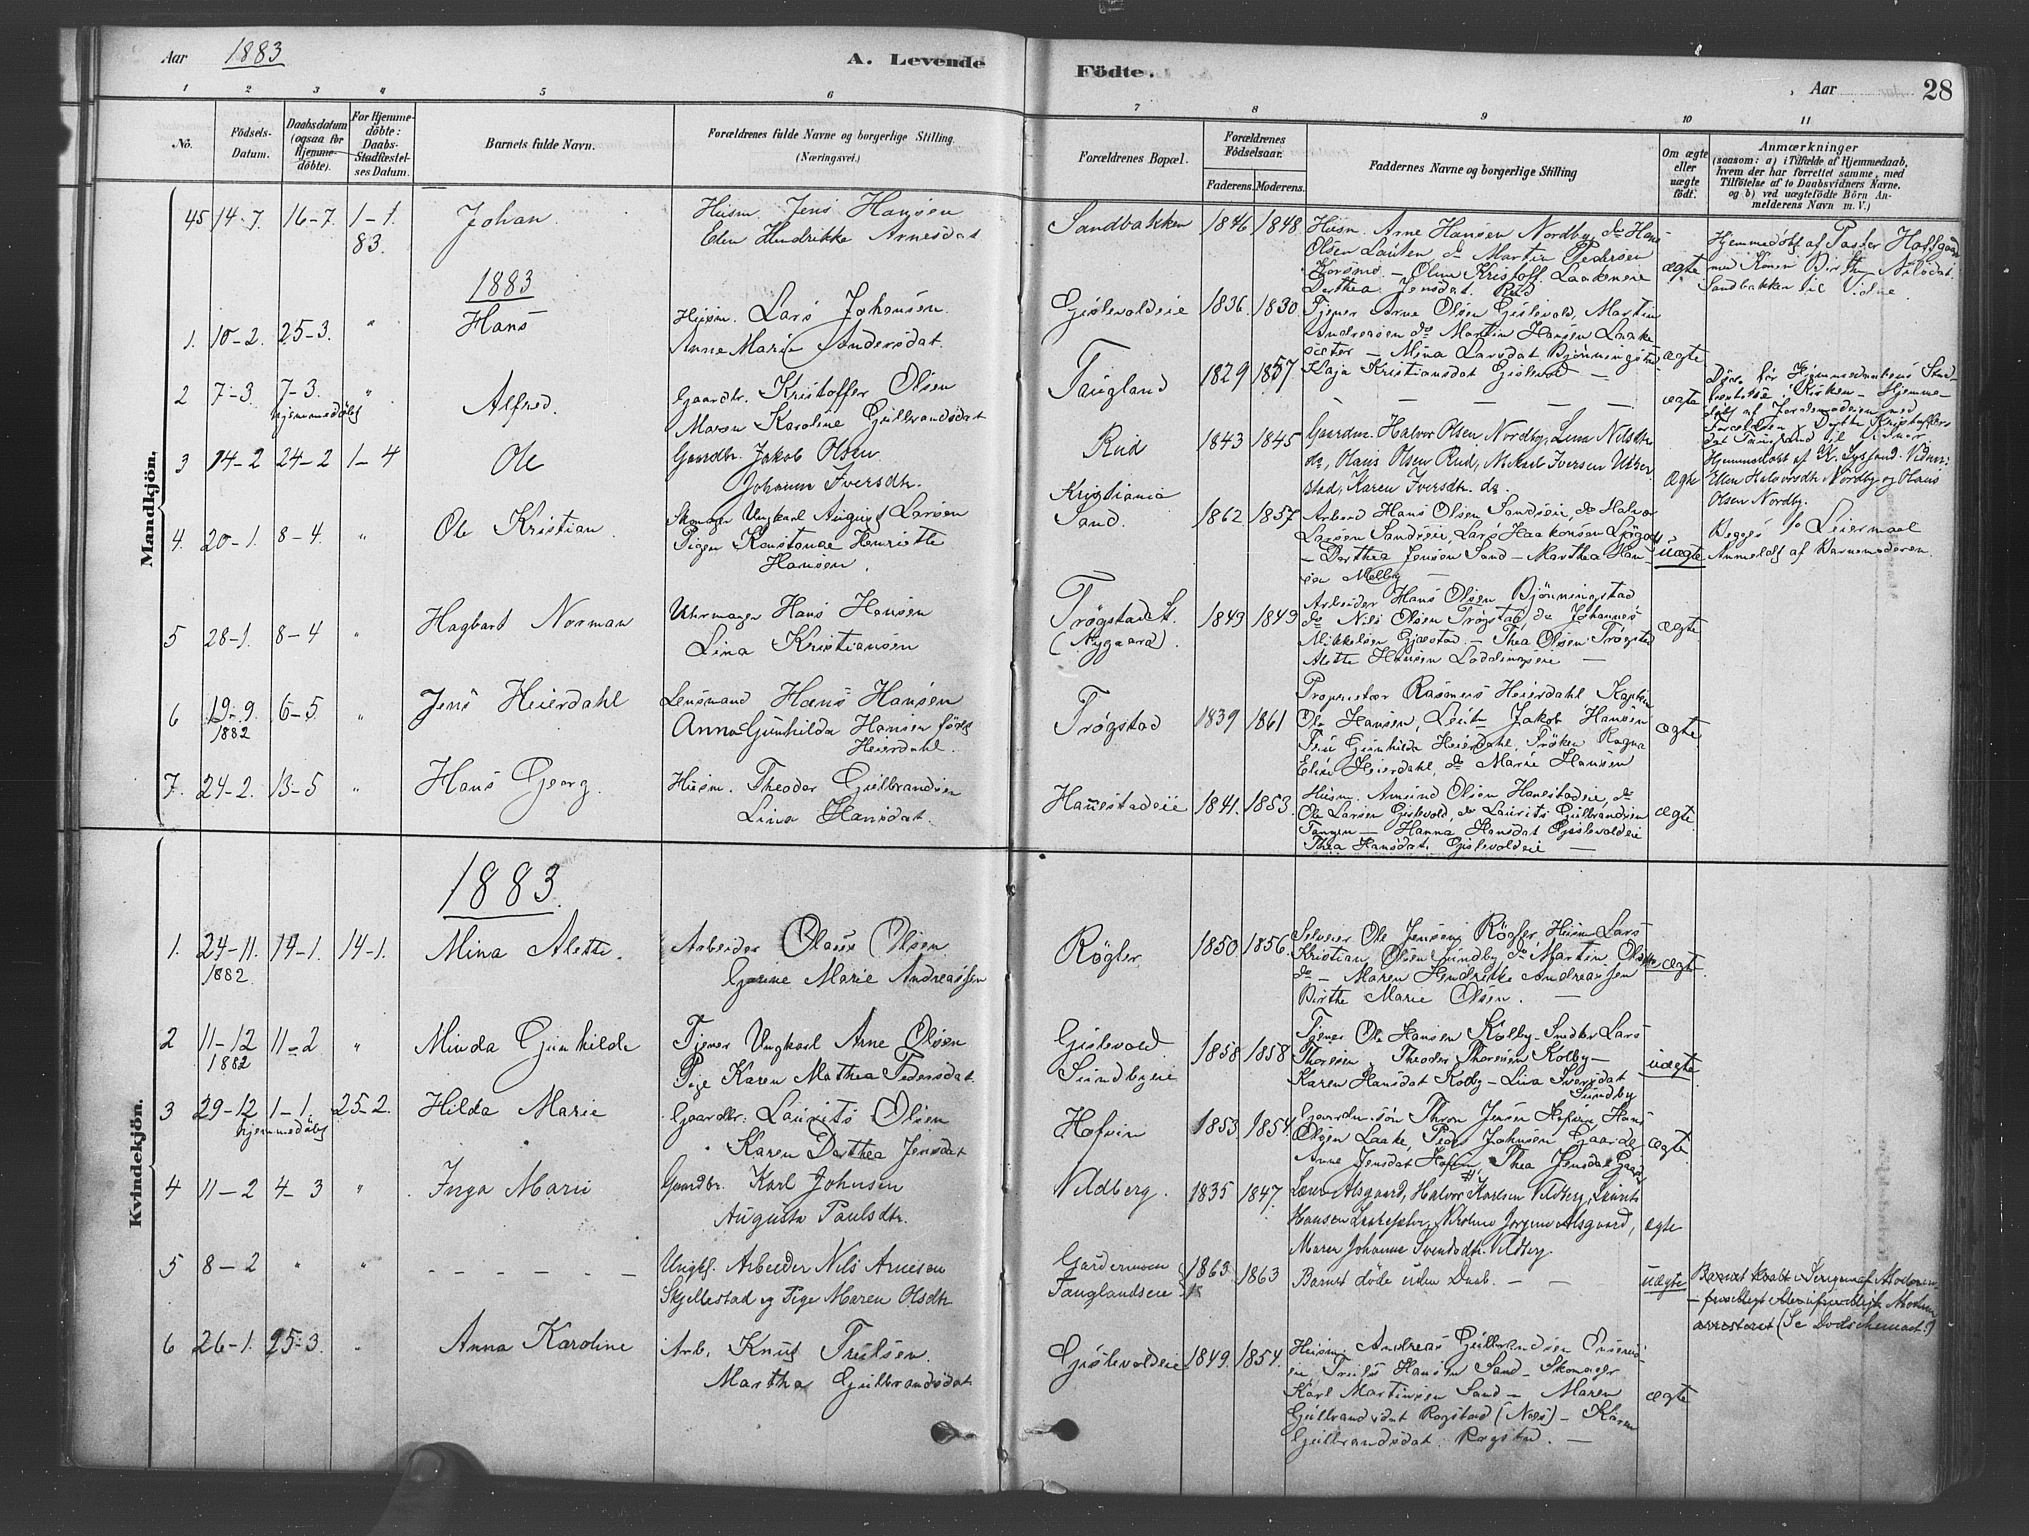 Aar 1883 A. Levende Födte. Aar 28
1 2 3 4 5 6 7 8 9 10 11
No.
Födsels-Datum.
Daabsdatum (ogsaa for Hjemme-döbte).
For Hjemme-döbte: Daabs-Stadfæstelses Datum.
Barnets fulde Navn.
Forældrenes fulde Navne og borgerlige Stilling. (Næringsvei.)
Forældrenes Bopæl.
Forældrenes Födselsaar.
Faderens. Moderens.
Faddernes Navne og borgerlige Stilling
Om ægte eller uægte födt.
Anmærkninger
(saasom: a) i Tilfælde af Hjemmedaab,
hvem der har forrettet samme, med
Tilföielse af to Daabsvidners Navne.
og b) ved uægtefödte Börn An-
melderens Navn m. V.)
Mandkjön.
45 14-7 16-7 1-1 83. Johan Husm. Jens Hansen
Elen Hendrikke Arnesdat
Sandbakken 1846 1848
Husm. Arne Hansen Nordby, do Hans
Olsen Lauten do Martin Pedersen
Korsmo – Oline Kristoff. Laakeneie
Dorthea Jensdat. Rud
ægte
Hjemmedöbt af Pastor Hofgaard
med Konen Birthe Nilsdat
Sandbakken til Vidne
1883
1. 10-2. 25-3. " Hans Husm. Lars Johansen.
Anne Marie Andersdat.
Gislevoldeie 1836. 1830.
Tjener Arne Olsen Gislevold, Martin
Andreasen do Martin Hansen Laake
sæter – Mina Larsdat Bjønningstad
Kaja Kristiansdat Gislevold –
ægte
2 7-3. 7-3. hjemmedöbt " Alfred. Gaardbr. Kristoffer Olsen
Maren Karoline Gulbrandsdat
Taugland 1829 1857.
ægte
3 14-2 24-2 1-4 Ole Gaardbr. Jakob Olsen
Johanne Iversdtr.
Rud 1843 1845
Gaardm. Halvor Olsen Nordby, Lina Nilsdtr
do, Olaus Olsen Rud, Mikael Iversen
stad, Karen Iversdtr. do.
Ægte
Hjemmedöbt af K. Lysland. Vidner:
Ellen Halvorsdtr Nordby og Olaus
Olsen Nordby.
4. 20-1. 8-4. " Ole Kristian. Skomager Ungkarl August Larsen
Pigen Konstanse Henriette
Hansen.
Kristiania
Sand. 1862 1857
Arbeid Hans Olsen Sandseie, do Halvor
Larsen Sandseie, Lars Haakonsen
– Dorthea Jensen Sand – Marthea Han-
sen Melby –
uægte
Begges 1ste Leiermaal
Anmeldt af Barnemoderen.
5 28-1. 8-4 " Hagbart Norman Uhrmager Hans Hansen
Lina Kristiansen
Trøgstad St. (Nygaard). 1849 1843
Arbeider Hans Olsen Bjønningstad
do Nils Olsen Trøgstad, do Johannes
Mikkelsen Gjestad – Thea Olsen Trøgstad
Alette Hansen Loddingseie –
ægte
6 19-9. 1882 6-5. " Jens Heierdahl Lensmand Hans Hansen
Anna Gunhilda Hansen født
Heierdahl.
Trøgstad 1839 1861
Proprietær Rasmus Heierdahl Kaptein
Ole Hansen, Leutn Jakob Hansen
Fru Gunhilda Heierdahl, Frøken Ragna
Elise Heierdahl, do Marie Hansen
ægte
7. 24-2. 13-5 " Hans Georg. Husm. Theodor Gulbrandsen
Lina Hansdat.
Hanestadeie 1841. 1853.
Husm. Amund Olsen Hanestadeie, do
Ole Larsen Gislevold, do Laurits Gulbrandsen
Tangen – Hanna Hansdat Gislevoldeie
Thea Hansdat. Gislevoldeie –
ægte
Kvindekjön.
1883.
1. 24-11. 1882 14-1. 14-1. Mina Alette. Arbeider Olaus Olsen
Gurine Marie Andreassen
Røgler 1850 1856.
Selveier Ole Jensen, Røgler Husm Lars
Kristian Olsen Sundby, do Martin Olsen
do – Maren Hendrikke Andreassen
Birthe Marie Olsen. –
ægte
2 11-12 1882 11-2 " Minda Gunhilde Tjener Ungkarl Arne Olsen
Pige Karen Mathea Pedersdat.
Gislevold.
Sundbyeie 1858 1858
Tjener Ole Hansen Kolby – Lars
Thoresen Theodor Thoresen Kolby –
Karen Hansdat Kolby – Lina Iversdat
Sundby
uægte
3 29-12 1-1. hjemmedöbt 25-2. Hilda Marie Gaardbr. Laurits Olsen
Karen Dorthea Jensdat
Hofvin 1853 1854.
Gaardm. søn Thron Jensen Hofvin Hans
Olsen Laake, Johnsen Gaarde
Anne Jensdat Hofvin, Thea Jensdat
ægte
4 11-2 4-3 " Inga Marie Gaardbr. Karl Johnsen
Augusta Paulsdtr.
Vildberg. 1835 1847.
Alsgaard, Halvor Karlsen Vildberg, Laurits
Hansen Laakesæter, Nikoline Jørgine Alsgaard,
Maren Johanne Svendsdtr. Vildberg.
ægte
5 8-2 " " – – – – – Ungk. Arbeider Nils Arnesen
Skjellestad og Pige Maren Olsdtr.
Gardermoen
Tauglandseie 1863 1863
Barnet døde uden Daab. – –
uægte
Barnet kvalt i Sengen af Moderen
arresteret (Se Dødsschemaet!)
6 26-1. 25-3. " Anna Karoline Arb. Knut Trulsen.
Martha Gulbrandsdat
Gislevoldeie 1849. 1854.
Husm. Andreas Gulbrandsen
Truls Hansen Sand – Skomager
Karl Martinsen Sand – Maren
Gulbrandsdat Rogstad (Nols) – Karen
Gulbrandsdat. Rogstad. –
ægte